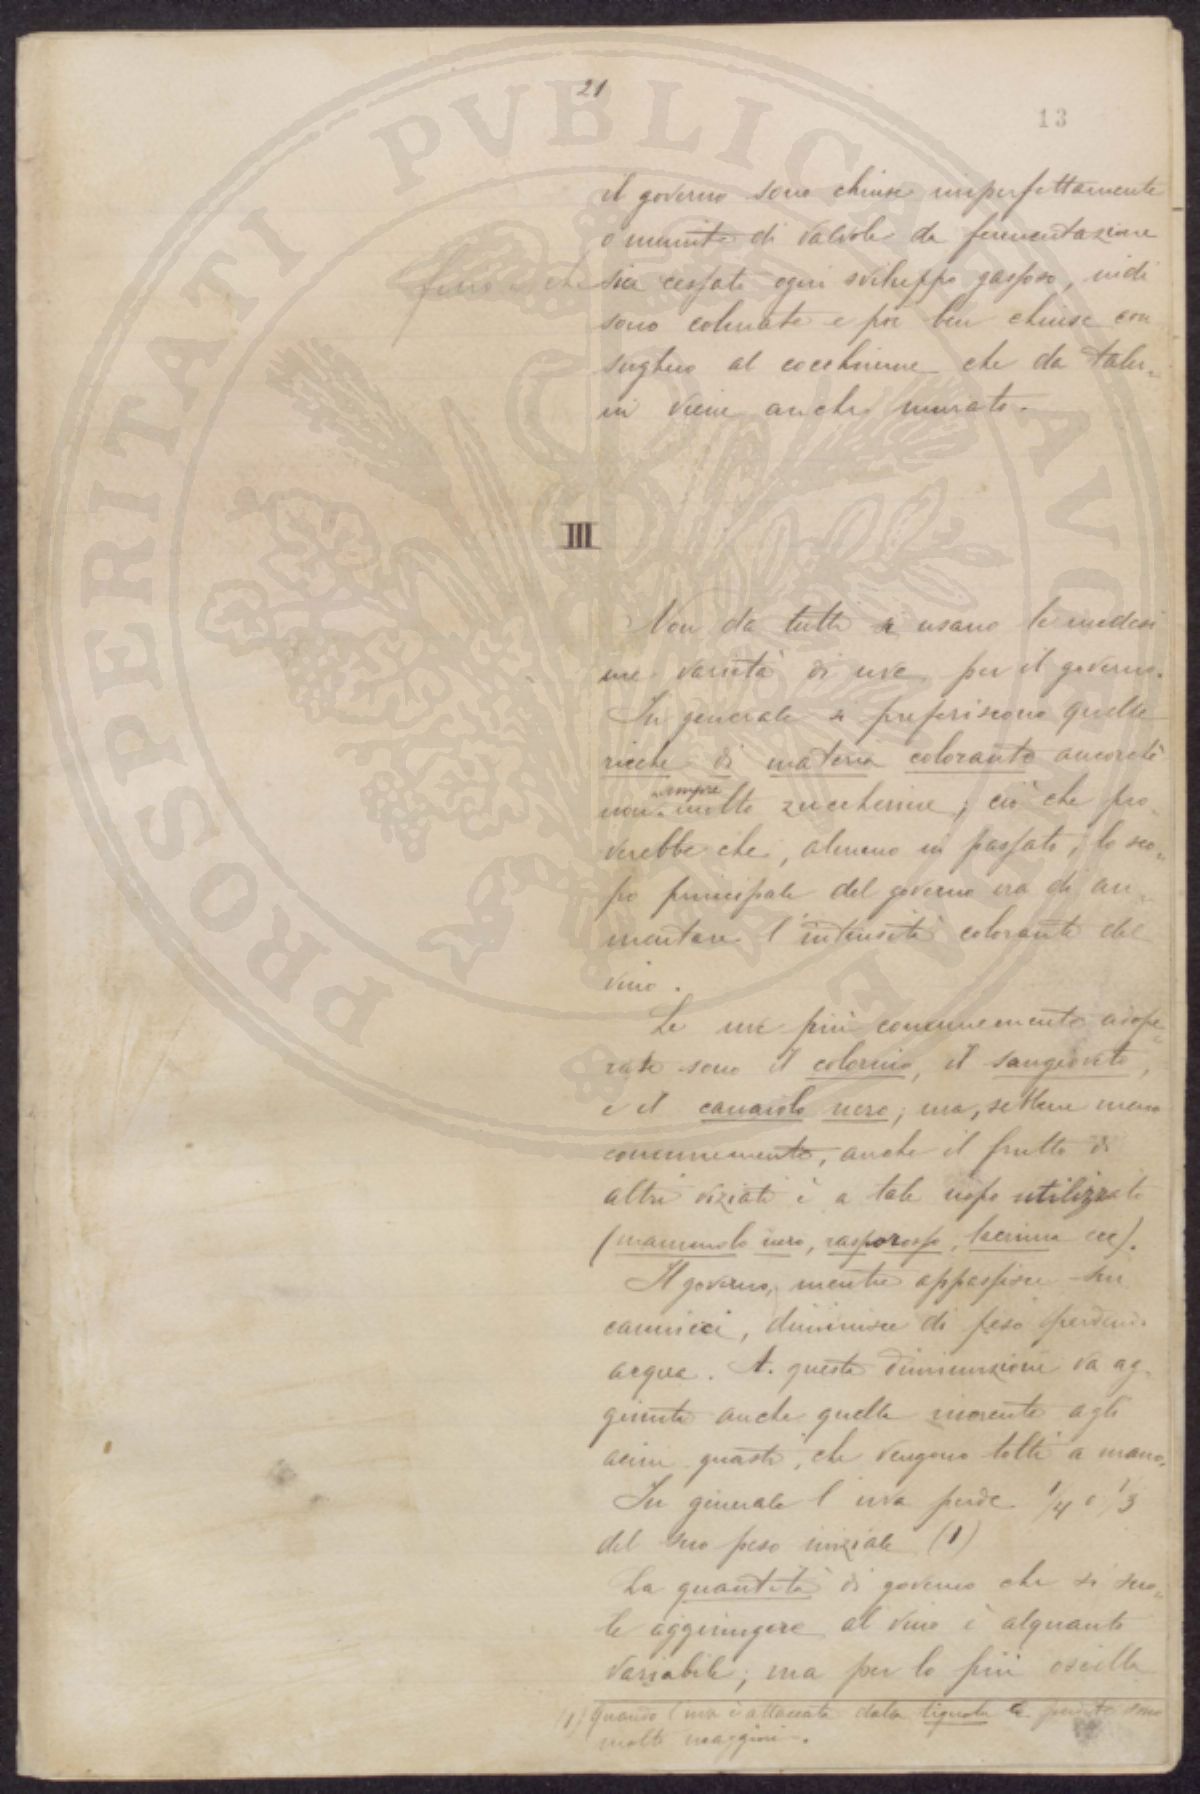 21
13
il governo sono chiuse imperfettamente
o munite di valvole da fermentazione
fino a che sia cessato ogni sviluppo gassoso, indi
sono colmate e poi ben chiuse con
sughero al cocchiume che da talu=
ni viene anche murato.
III
Non da tutti si usano le medesi
me varietà di uve per il governo.
In generale si preferiscono quelle
ricche di materia colorante ancorchè
non sempre molto zuccherine; ciò che pro
verebbe che, almeno in passato, lo sco=
po principale del governo era di au=
mentare l'intensità colorante del
vino.
Le uve più comunemente adope=
rate sono il colorino, il sangioveto,
e il canaiolo nero; ma, sebbene meno
comunemente, anche il frutto di
altri viziati è a tale uopo utilizzato
(mammolo nero, raspo rosso, lacrima ecc).
Il governo, mentre appassisce sui
cannicci, diminuisce di peso perdendo
acqua. A questa diminuzione va ag=
giunta anche quella inerente agli
acini guasti, che vengono tolti a mano.
In generale l'uva perde 1/4 o 1/3
del suo peso iniziale (1)
La quantità di governo che si suo=
le aggiungere al vino è alquanto
variabile; ma per lo più oscilla
(1) Quando l'uva è attaccata dalla tignola le perdite sono
molto maggiori.
PROSPERITATI PVBLICAE AVGENDAE